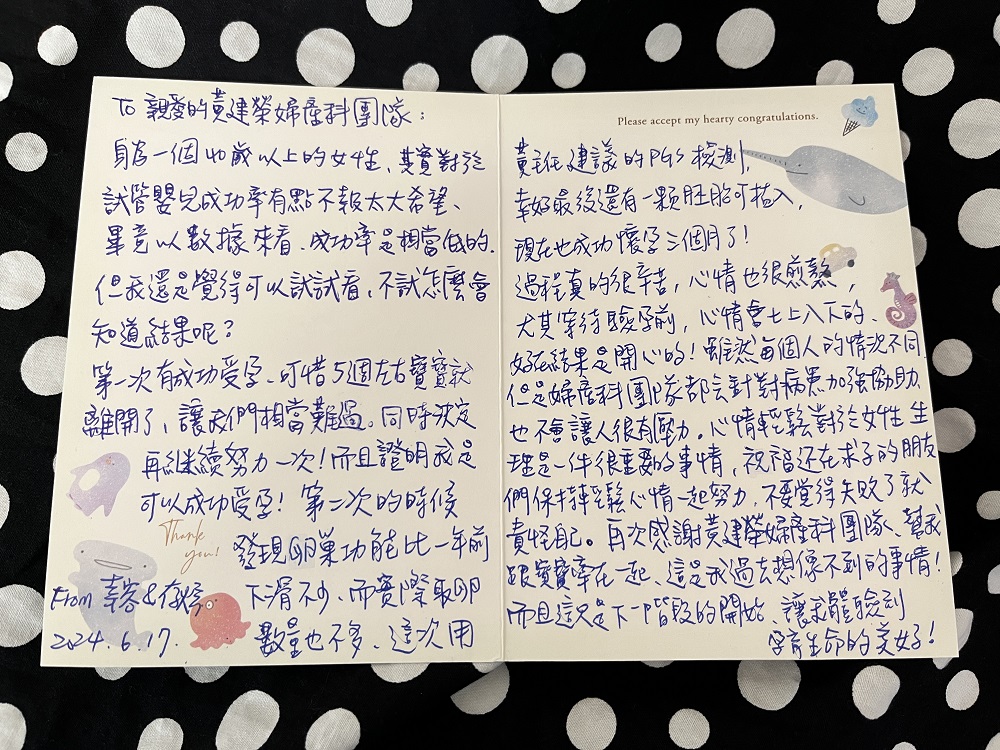 To 親愛的黃建榮婦產科團隊:
身為一個40歲以上的女性、其實對於
試管嬰兒成功率有點不報太大希望、
畢竟以數據來看、成功率是相當低的.
但我還是覺得可以試試看、不試怎麼會
知道結果呢?
第一次有成功受孕、可惜5週左右寶寶就
離開了、讓我們相當難過。同時決定
再繼續努力一次!而且證明我是
可以成功受孕! 第二次的時候
Thank you!
發現卵巢功能比一年前
下滑不少、而實際取卵
數量也不多、這次用
From &
2024.6.17.
Please accept my hearty congratulations.
黃主任建議的PGS檢測,
幸好最後還有一顆胚胎可植入,
現在也成功懷孕三個月了!
過程真的很辛苦, 心情也很煎熬,
尤其等待驗孕前, 心情會七上八下的、
好在結果是開心的! 雖然每個人的情況不同
但是婦產科團隊都會針對病患加強協助、
也不會讓人很有壓力, 心情輕鬆對於女性生
理是一件很重要的事情, 祝福還在求子的朋友
們保持輕鬆心情一起努力、不要覺得失敗了就
責怪自己。再次感謝黃建榮婦產科團隊、幫我
跟寶寶牽在一起、這是我過去想像不到的事情!
而且這只是下一階段的開始、讓我體驗到
孕育生命的美好!